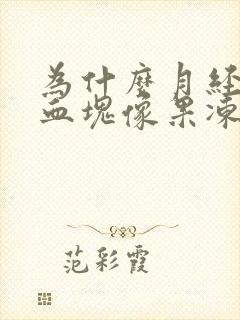 為什麼月經
血塊像果凍
范彩霞